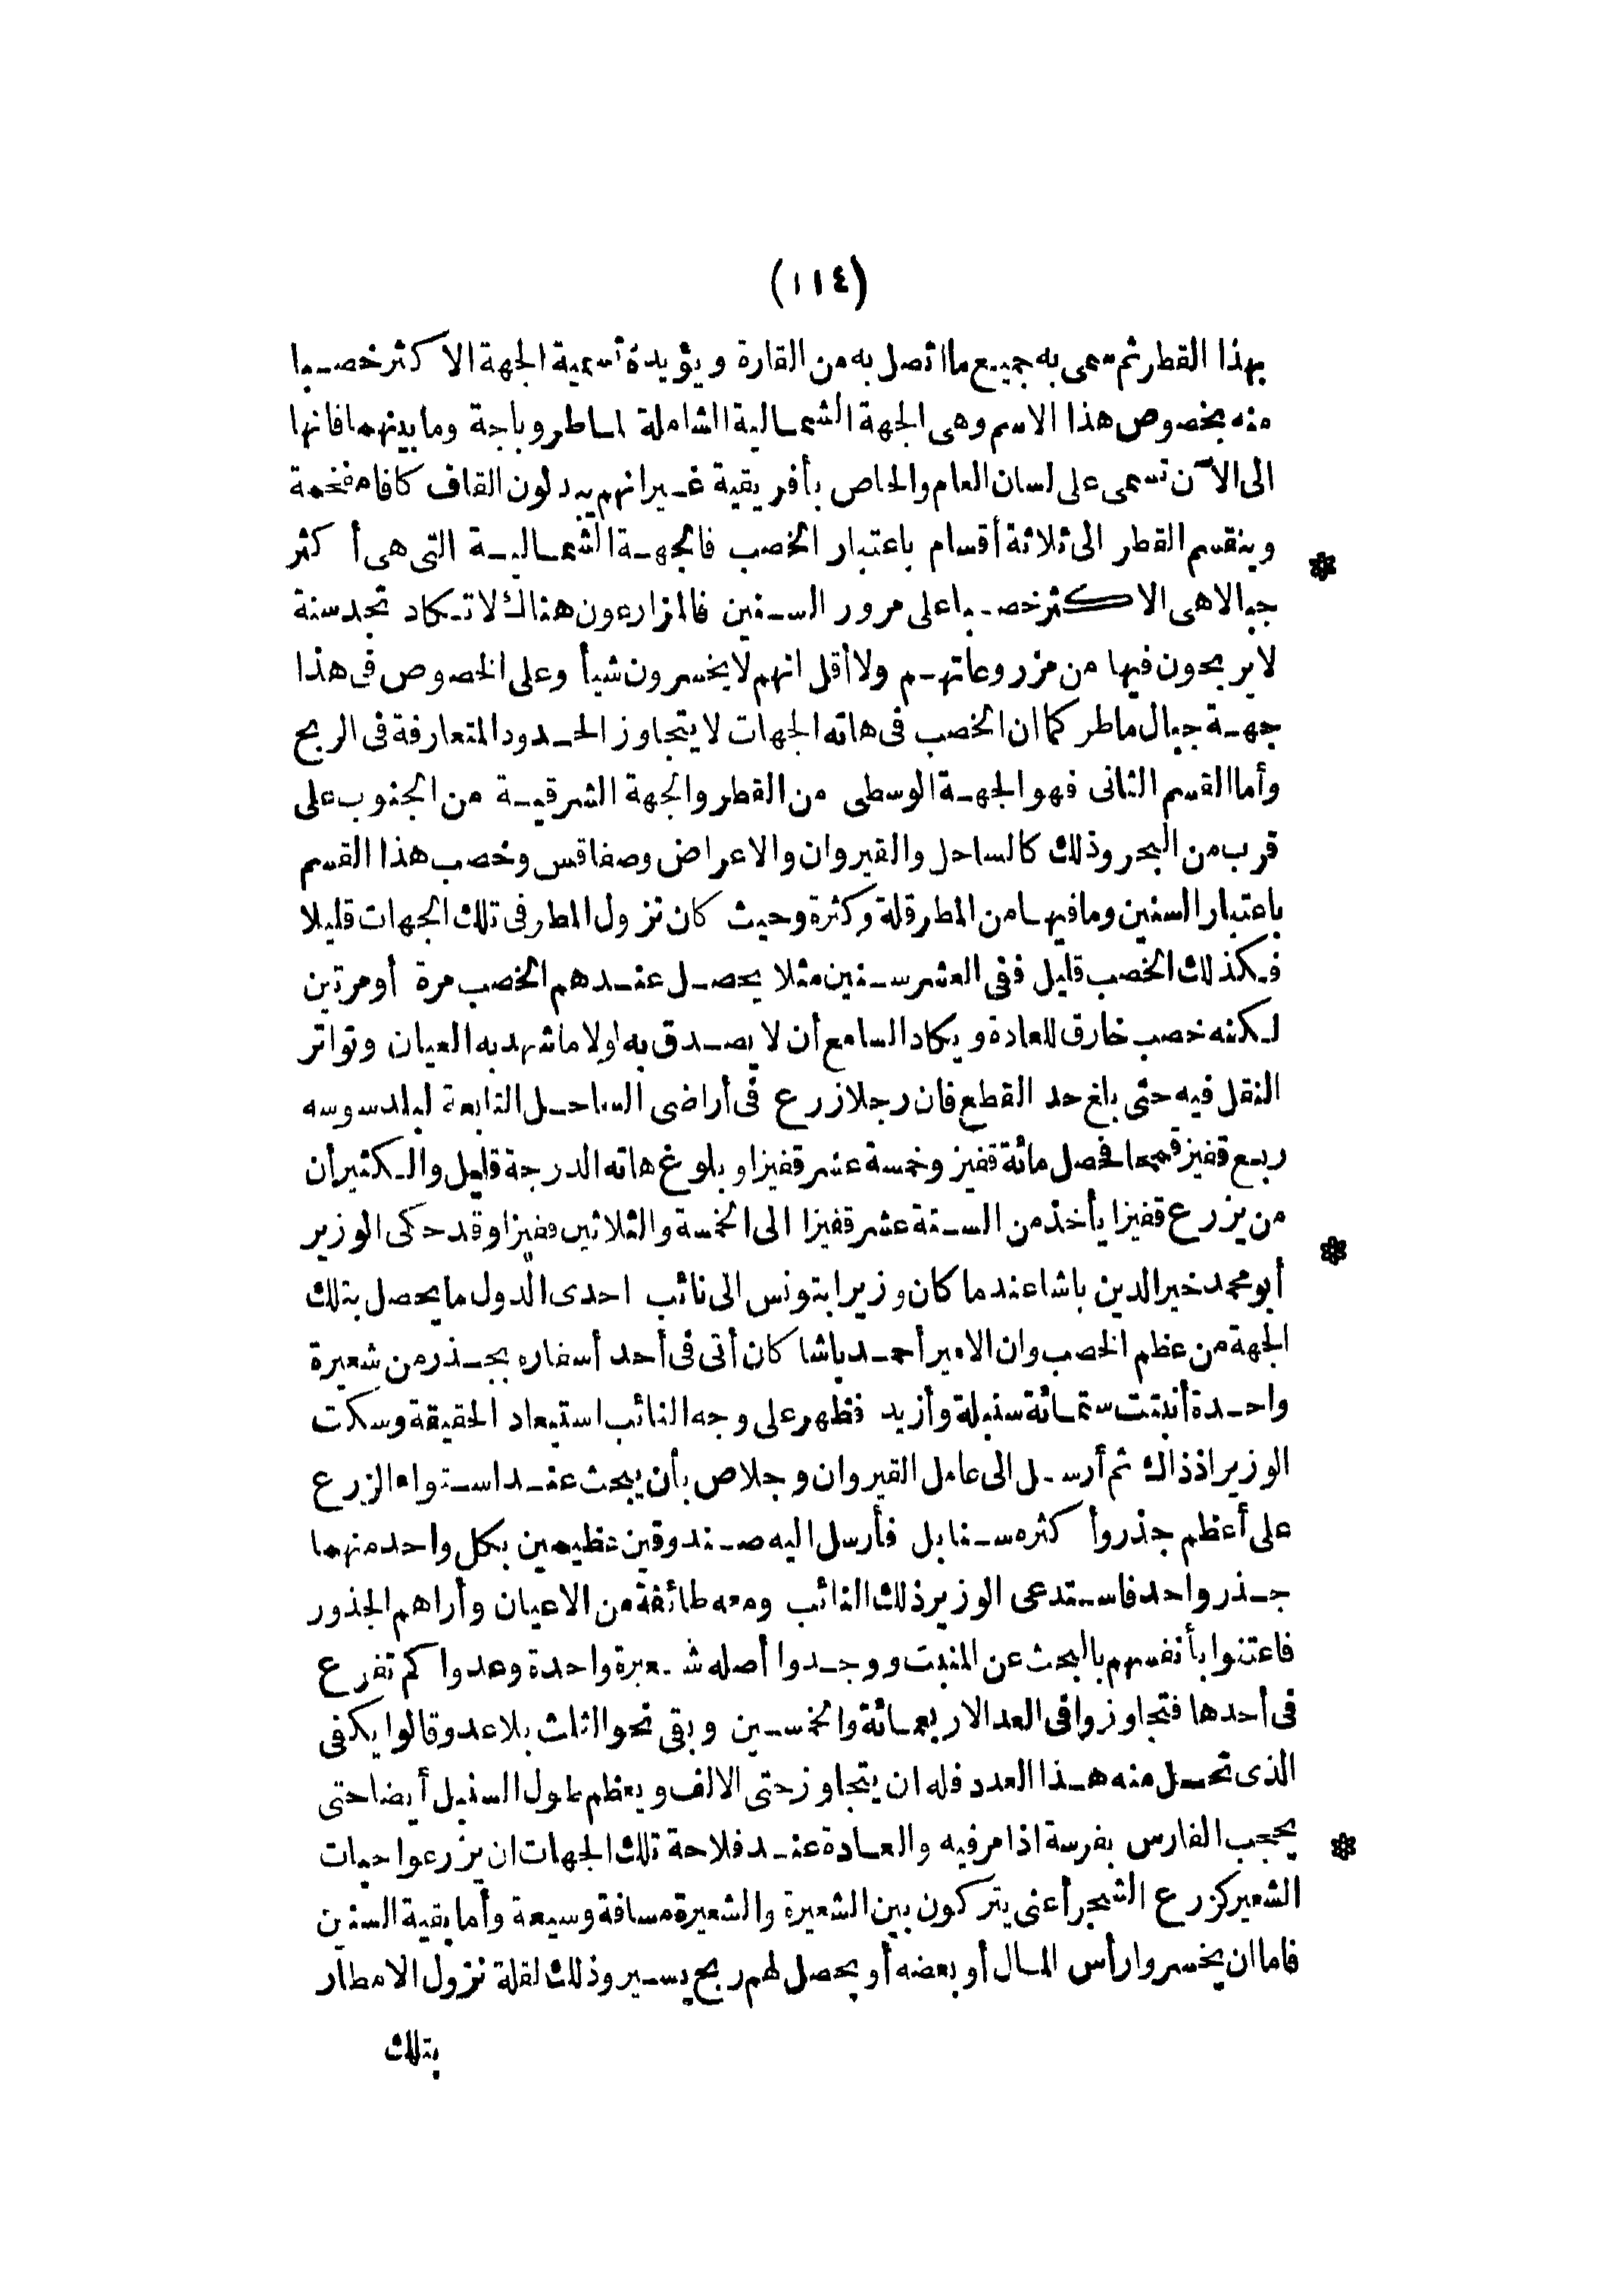 (١١٤)
بهذا القطر ثم سمى به جميع ما اتصل به من القارة ويؤيده تسمية الجهة الاكثر خصبا
منه بخصوص هذا الاسم وهى الجهة الشمالية الشاملة لماطر وباجة وما بينهما فانها
الى الآن تسمى على لسان العام والخاص بأفريقية غير انهم يبدلون القاف كافا مفخمة
وينقسم القطر الى ثلاثة أقسام باعتبار الخصب فالجهة الشمالية التى هى أكثر *
جبالا هى الاكثر خصبا على مرور السنين فالمزارعون هناك لا تكاد تجد سنة
لا يربحون فيها من مزروعاتهم ولا أقل انهم لا يخسرون شيأ وعلى الخصوص فى هذا
جهة جبال ماطر كما ان الخصب فى هاته الجهات لا يتجاوز الحدود المتعارفة فى الربح
وأما القسم الثانى فهو الجهة الوسطى من القطر والجهة الشرقية من الجنوب على
قرب من البحر وذلك كالساحل والقيروان والاعراض وصفاقس وخصب هذا القسم
باعتبار السنين وما فيها من المطر قلة وكثرة وحيث كان نزول المطر فى تلك الجهات قليلا
فكذلك الخصب قليل ففى العشر سنين مثلا يحصل عندهم الخصب مرة أو مرتين
لكنه خصب خارق للعادة ويكاد السامع أن لا يصدق به لولا ما شهد به العيان وتواتر
النقل فيه حتى بلغ حد القطع فان رجلا زرع فى أراضى الساحل التابعة لبلد سوسه
ربع قفيز قمحا فحصل مائة قفيز وخمسة عشر قفيزا وبلوغ هاته الدرجة قليل والكثير أن
من يزرع قفيزا يأخذ من الستة عشر قفيزا الى الخمسة والثلاثين قفيزا وقد حكى الوزير *
أبو محمد خير الدين باشا عندما كان وزيرا بتونس الى نائب احدى الدول ما يحصل بتلك
الجهة من عظم الخصب وان الامير أحمد باشا كان أتى فى أحد أسفاره بجذر من شعيرة
واحدة أنبتت ستمائة سنبلة وأزيد فظهر على وجه النائب استبعاد الحقيقة وسكت
الوزير اذ ذاك ثم أرسل الى عامل القيروان وجلاص بأن يبحث عند استواء الزرع
على أعظم جذر وأكثره سنابل فأرسل اليه صندوقين عظيمين بكل واحد منهما
جذر واحد فاستدعى الوزير ذلك النائب ومعه طائفة من الاعيان وأراهم الجذور
فاعتنوا بأنفسهم بالبحث عن المنبت ووجدوا أصله شعيرة واحدة وعدوا كم تفرع
فى أحدها فتجاوزوا فى العد الاربعمائة والخمسين وبقى نحو الثلث بلا عد وقالوا يكفى
الذى تحصل منه هذا العدد فله ان يتجاوز حتى الالف ويعظم طول السنبل أيضا حتى
يحجب الفارس بفرسة اذا مر فيه والعادة عند فلاحة تلك الجهات ان يزرعوا حبات *
الشعير كزرع الشجر أعنى يتركون بين الشعيرة والشعيرة مسافة وسيعة وأما بقية السنين
فاما ان يخسروا رأس المال أو بعضه أو يحصل لهم ربح يسير وذلك لقلة نزول الامطار
بتلك